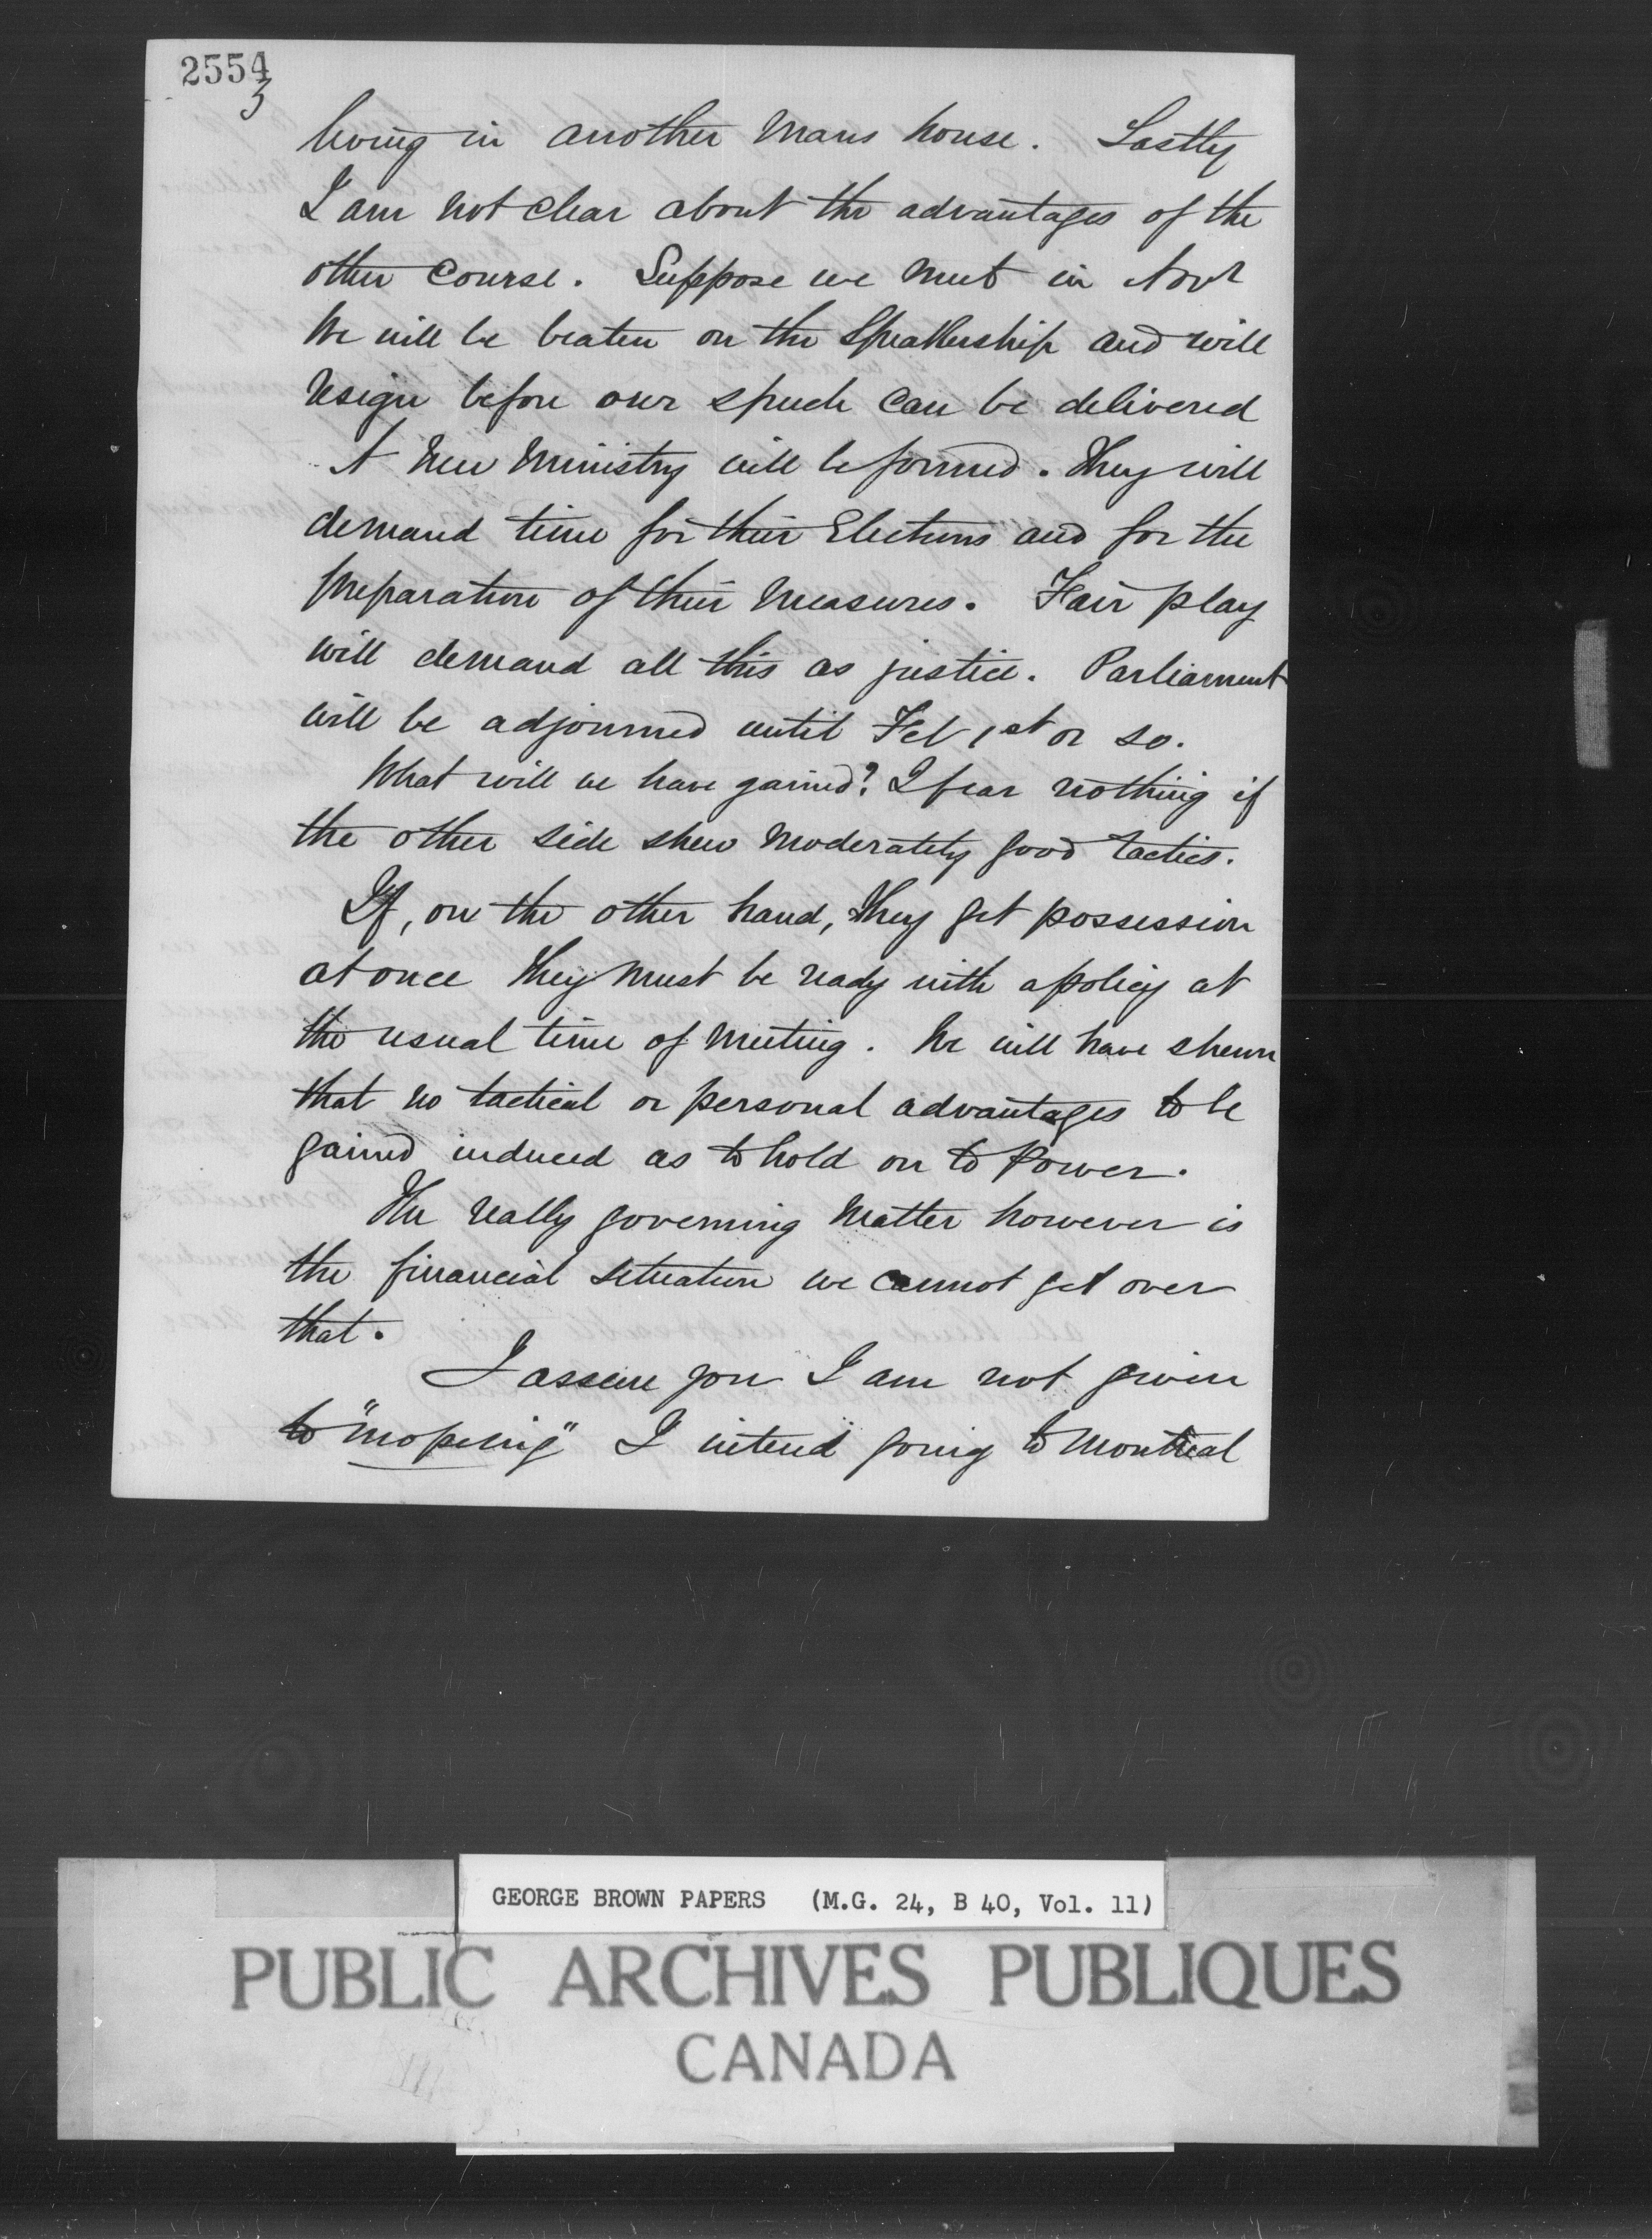 2554
3
living in another mans house. Lastly
I am not clear about the advantages of the
other course. Suppose we meet in Novr
We will be beaten on the Speakership and will
resign before our speech can be delivered
A new Ministry will be formed. They will
demand time for their Elections and for the
preparation of their measures. Fair play
will demand all this as justice. Parliament
will be adjourned until Feb 1st or so.
What will we have gained? I fear nothing if
the other side shew moderately good tactics.
If, on the other hand, they get possession
at once they must be ready with a policy at
the usual time of meeting. We will have shewn
that no tactical or personal advantages to be
gained induced us to hold on to power.
The really governing matter however is
the financial situation we cannot get over
that.
I assure you I am not given
to "moping" I intend going to Montreal
GEORGE BROWN PAPERS (M.G. 24, B 40, Vol. 11)
PUBLIC ARCHIVES PUBLIQUES
CANADA